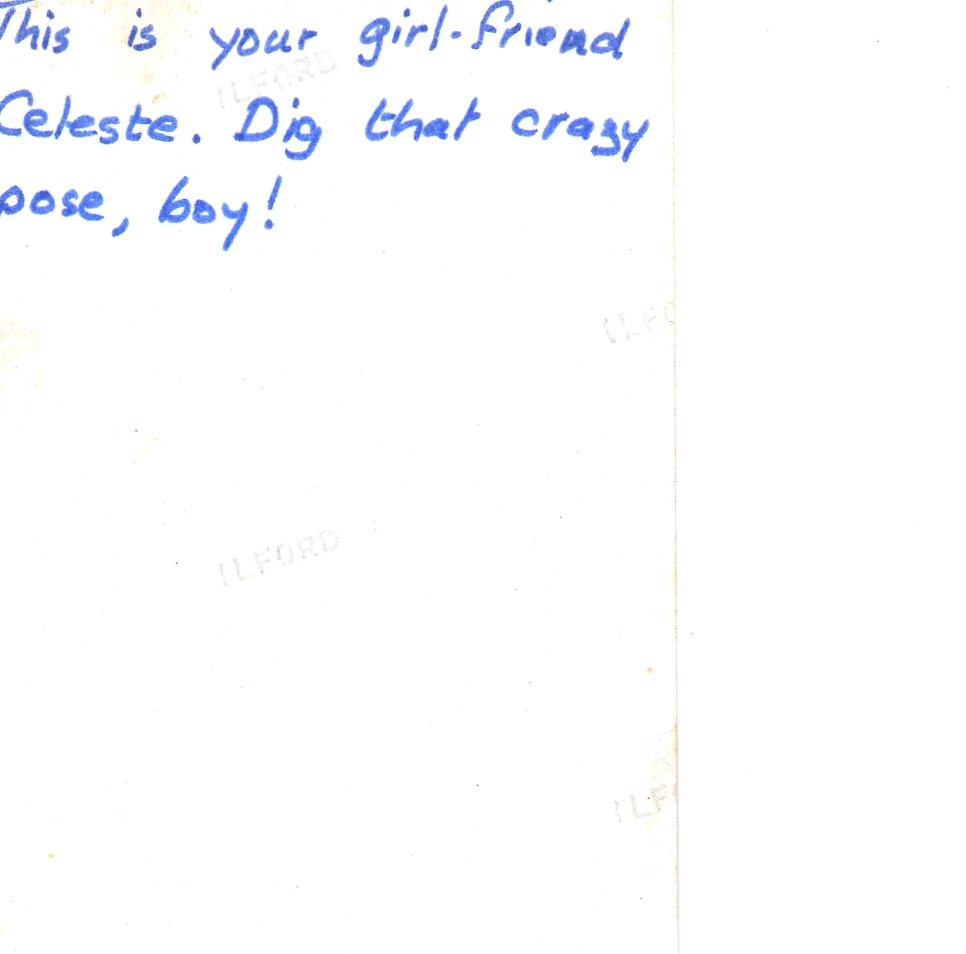 This is your girl-friend
Celeste. Dig that crazy
pose, boy!
ILFORD
ILFO
ILFORD
ILF